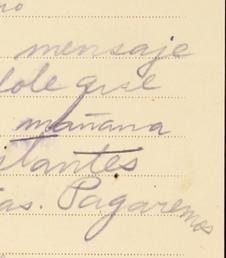 no
mensaje
dole que
mañana
stantes
as. Pagaremos